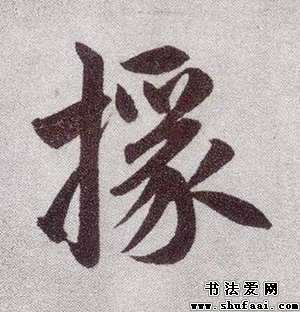 掾
书法爱网
www.shufaai.com